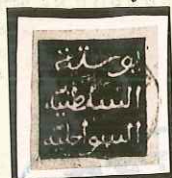 بوستة
السلطنة
السواحلية